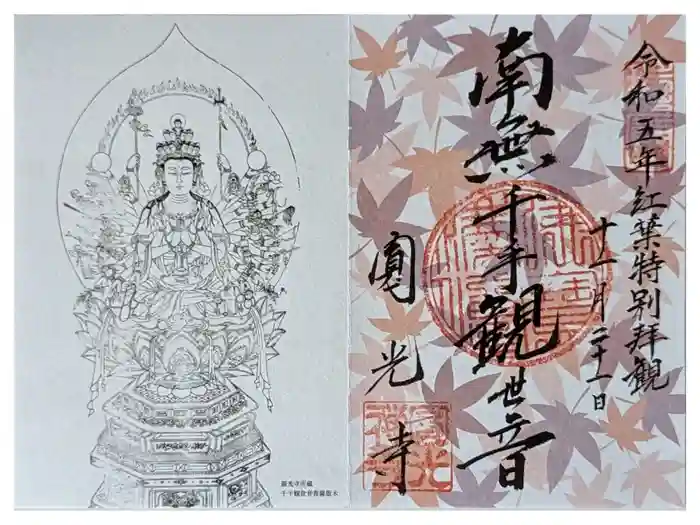 令和五年紅葉特別拝観
十一月二十一日
南無千手観世音
圓光寺
圓光寺所蔵